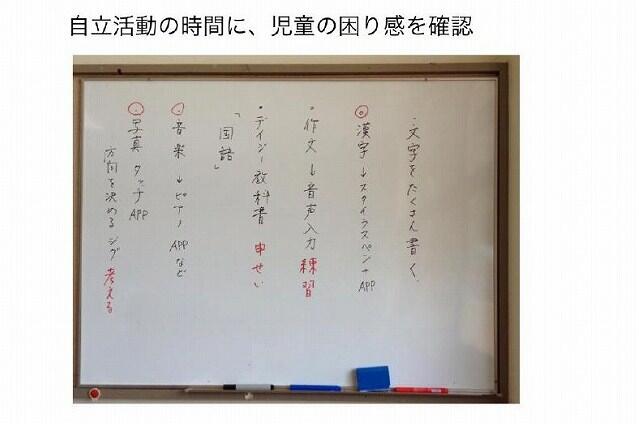 自立活動の時間に、児童の困り感を確認
・文字をたくさん書く。
・漢字→スタイラスペン+APP
・作文→音声入力 練習
・デイジー教科書 申せい
「国語」
・音楽→ピアノAPPなど
・写真 タッチAPP
方向を決めるジグ 考える